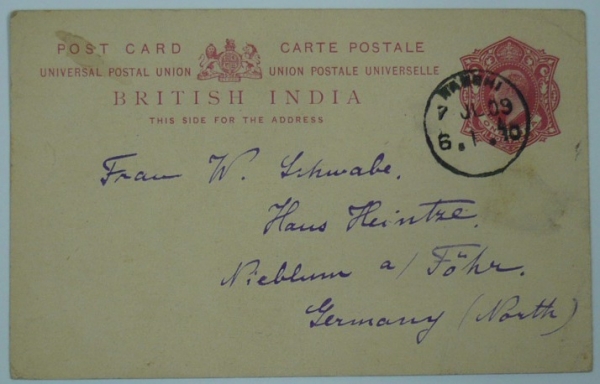 POST CARD CARTE POSTALE
UNIVERSAL POSTAL UNION UNION POSTALE UNIVERSELLE
BRITISH INDIA
THIS SIDE FOR THE ADDRESS
7 JU 09
6. .10
Frau W. Schwabe.
Haus Heintze.
Nieblum a/ Föhr.
Germany (North)